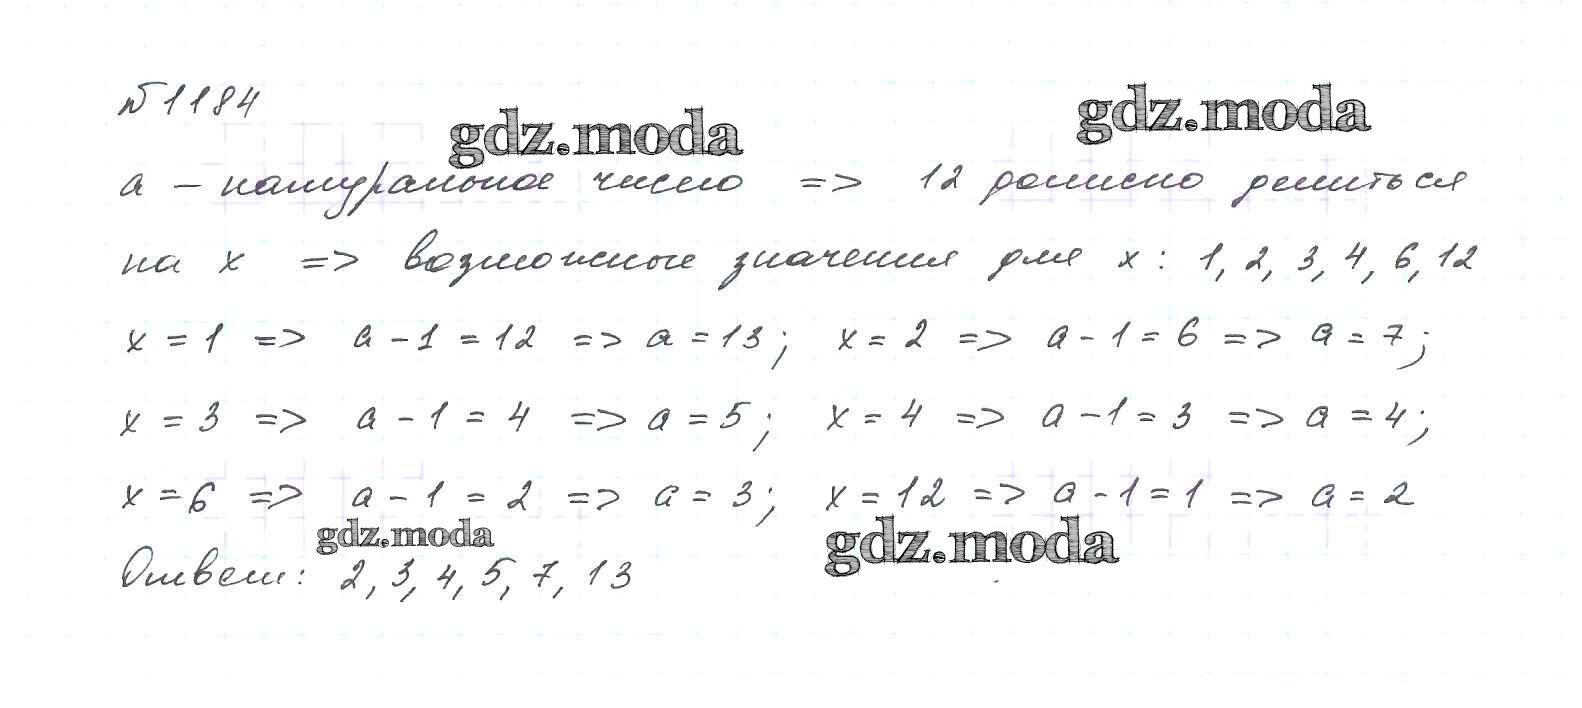 №1184
gdz.moda
gdz.moda
a – натуральное число => 12 должно делиться
на x => возможные значения для x: 1, 2, 3, 4, 6, 12
x = 1 => a - 1 = 12 => a = 13; x = 2 => a - 1 = 6 => a = 7;
x = 3 => a - 1 = 4 => a = 5; x = 4 => a - 1 = 3 => a = 4;
x = 6 => a - 1 = 2 => a = 3; x = 12 => a - 1 = 1 => a = 2
gdz.moda
gdz.moda
Ответ: 2, 3, 4, 5, 7, 13